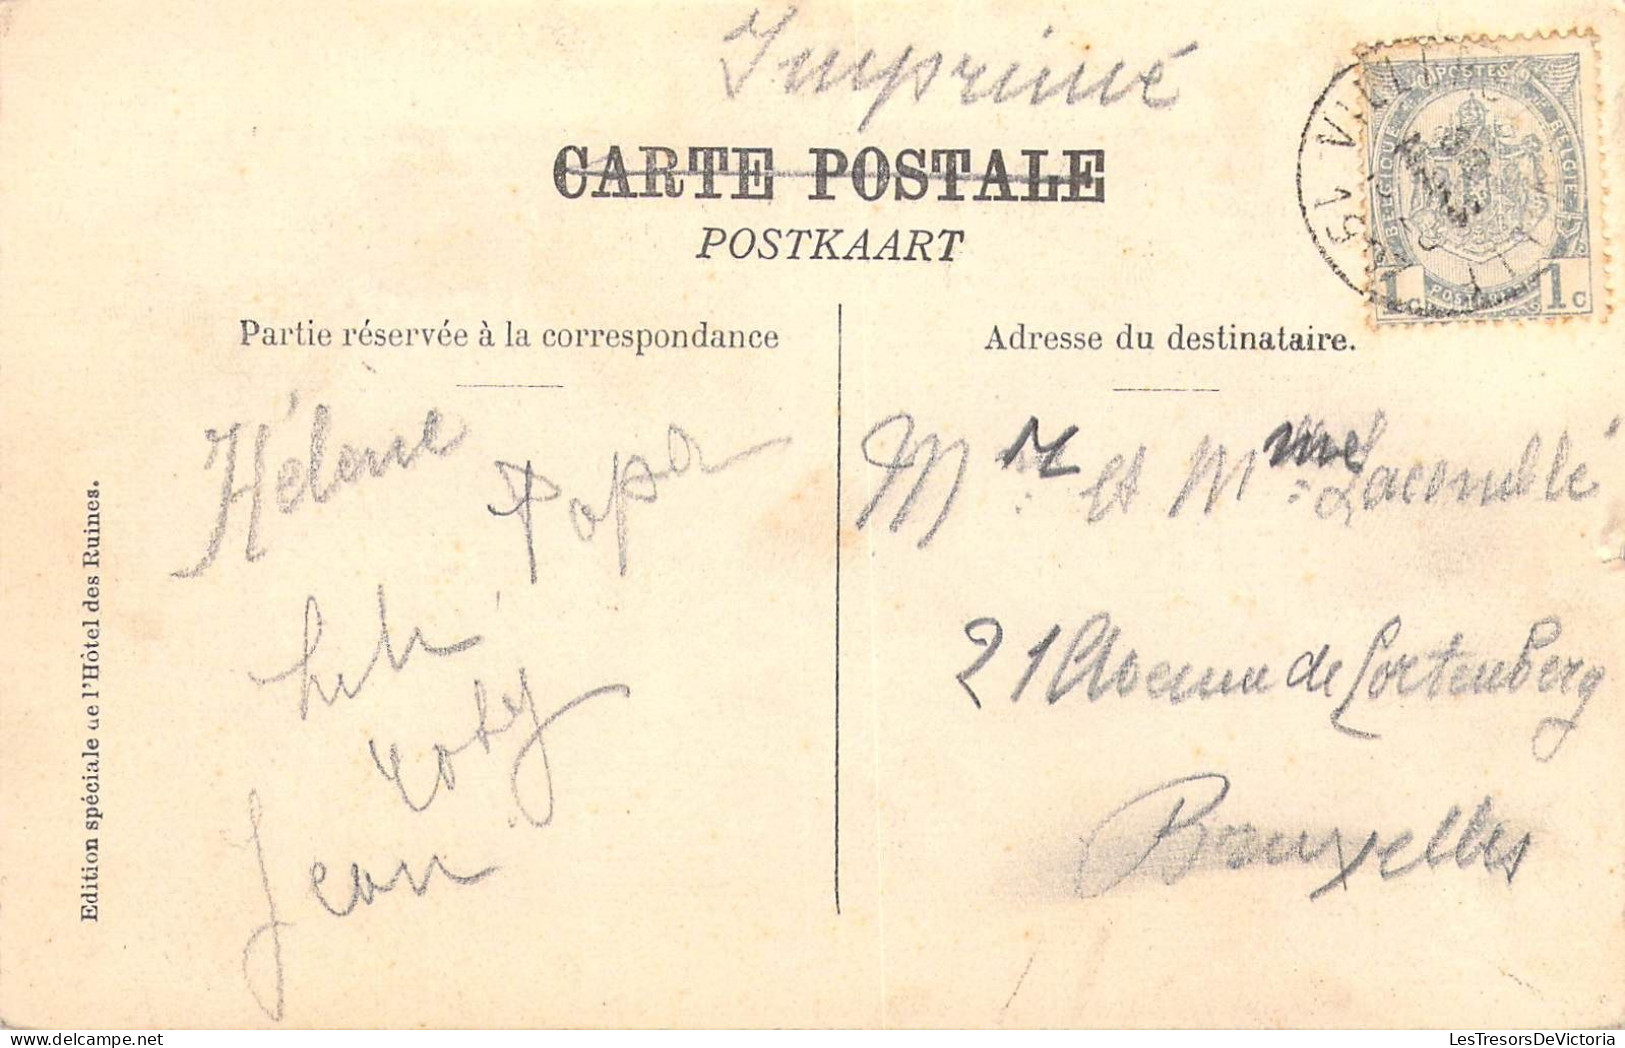 Imprimé
CARTE POSTALE
POSTKAART
POSTES
BELGIQUE
BELGIE
1 C
1 C
Partie réservée à la correspondance
Adresse du destinataire.
Hélène
Papa
Roby
Jean
Mr et Mme Lacomblé
21 Avenue de Cortenberg
Bruxelles
Edition spéciale de l'Hôtel des Ruines.
LesTresorsDeVictoria.com